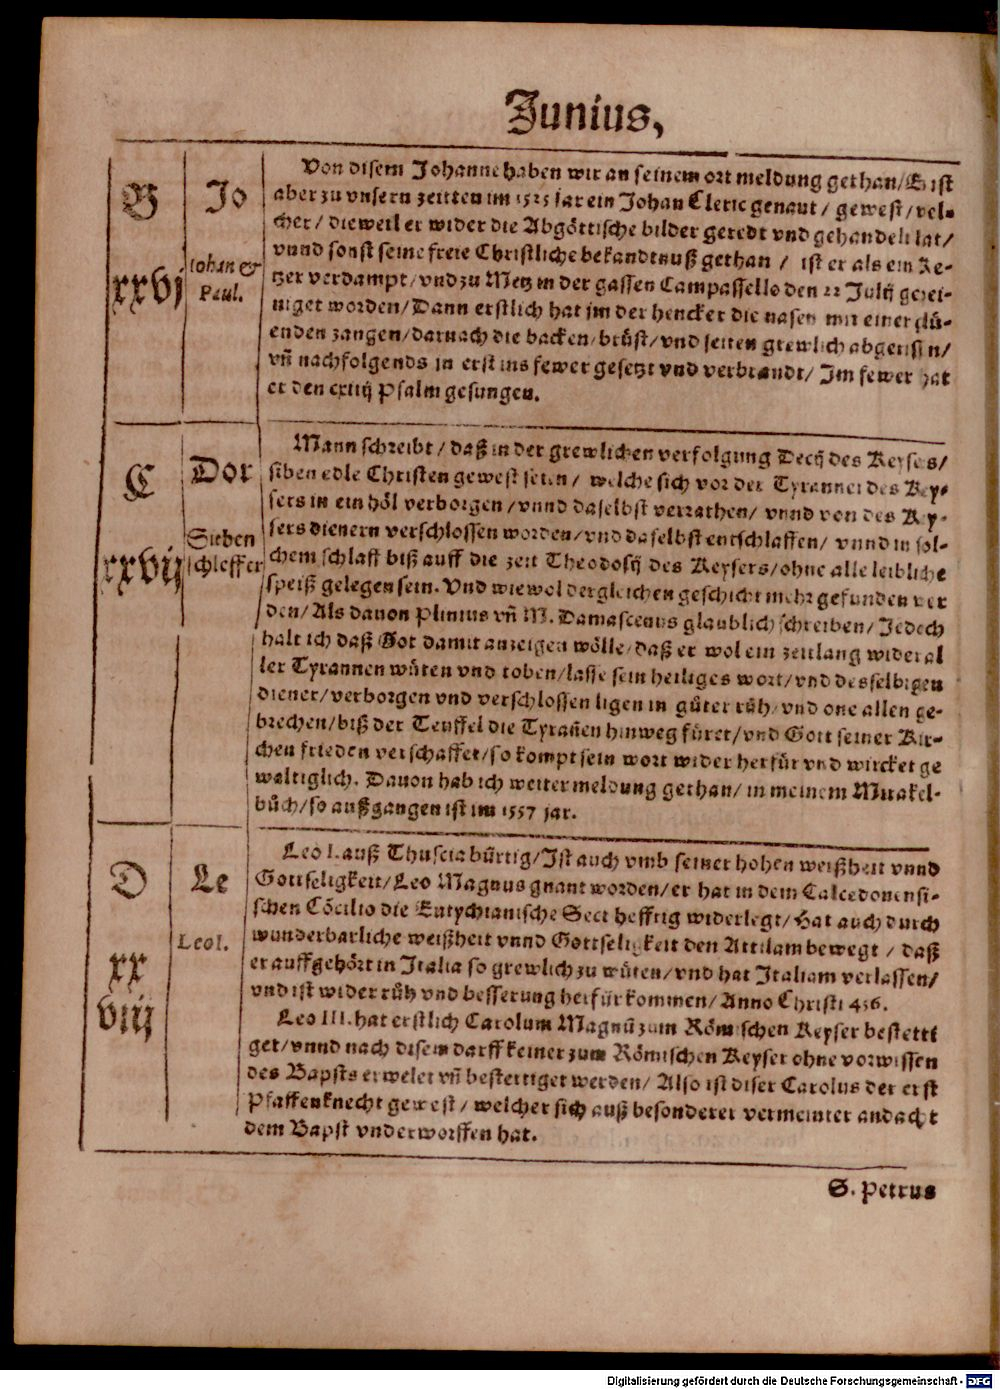 Junius,
B
Jo
xxvj
Iohan &
Paul.
Von disem Johanne haben wir an seinem ort meldung gethan/ Es ist
aber zu vnsern zeitten im 1525 jar ein Johan Cleric genant / gewest / vel-
cher / dieweil er wider die Abgöttische bilder geredt vnd gehandelt hat/
vnnd sonst seine freie Christliche bekandtnuß gethan / ist er als ein Ke-
tzer verdampt / vnd zu Metz in der gassen Campassello den 22 Julij gepei-
niget worden/ Dann erstlich hat jm der hencker die nasen mit einer glü-
enden zangen/ darnach die backen/ brüst/ vnd seiten grewlich abgerissen/
vn̄ nachfolgends in erst ins fewer gesetzt vnd verbrandt/ Im fewer hat
er den cxiiij Psalm gesungen.
C
Dor
xxvij
Sieben
schleffer
Mann schreibt / daß in der grewlichen verfolgung Decij des Keysers/
siben edle Christen gewest seien / welche sich vor der Tyrannei des Key-
sers in ein höl verborgen / vnnd daselbst verrathen/ vnnd von des Key-
sers dienern verschlossen worden/ vnd daselbst entschlaffen/ vnnd in sol-
chem schlaff biß auff die zeit Theodosij des Keysers/ ohne alle leibliche
speiß gelegen sein. Vnd wiewol dergleichen geschicht mehr gefunden wer
den/ Als dauon Plinius vn̄ M. Damascenus glaublich schreiben/ Jedoch
halt ich daß Got damit anzeigen wölle/ daß er wol ein zeitlang wider al
ler Tyrannen wüten vnd toben/ lasse sein heiliges wort/ vnd desselbigen
diener/ verborgen vnd verschlossen ligen in gůter růh/ vnd one allen ge-
brechen/ biß der Teuffel die Tyrañen hinweg füret/ vnd Gott seiner Kir-
chen frieden verschaffet/ so kompt sein wort wider herfür vnd wircket ge
waltiglich. Dauon hab ich weiter meldung gethan/ in meinem Mirakel-
bůch/ so außgangen ist im 1557 jar.
D
Le
xx
viij
Leo I.
Leo I. auß Thuscia bürtig/ Ist auch vmb seiner hohen weißheit vnnd
Gottseligkeit/ Leo Magnus gnant worden/ er hat in dem Calcedonensi-
schen Cōcilio die Eutychianische Sect hefftig widerlegt/ Hat auch durch
wunderbarliche weißheit vnnd Gottseligkeit den Attilam bewegt / daß
er auffgehört in Italia so grewlich zu wüten/ vnd hat Italiam verlassen/
vnd ist wider růh vnd besserung herfür kommen/ Anno Christi 456.
Leo III. hat erstlich Carolum Magnū zum Römischen Keyser bestetti
get/ vnnd nach disem darff keiner zum Römischen Keyser ohne vorwissen
des Bapsts erwelet vn̄ bestettiget werden/ Also ist diser Carolus der erst
Pfaffenknecht gewest / welcher sich auß besonderer vermeinter andacht
dem Bapst vnderworffen hat.
S. Petrus
Digitalisierung gefördert durch die Deutsche Forschungsgemeinschaft - DFG